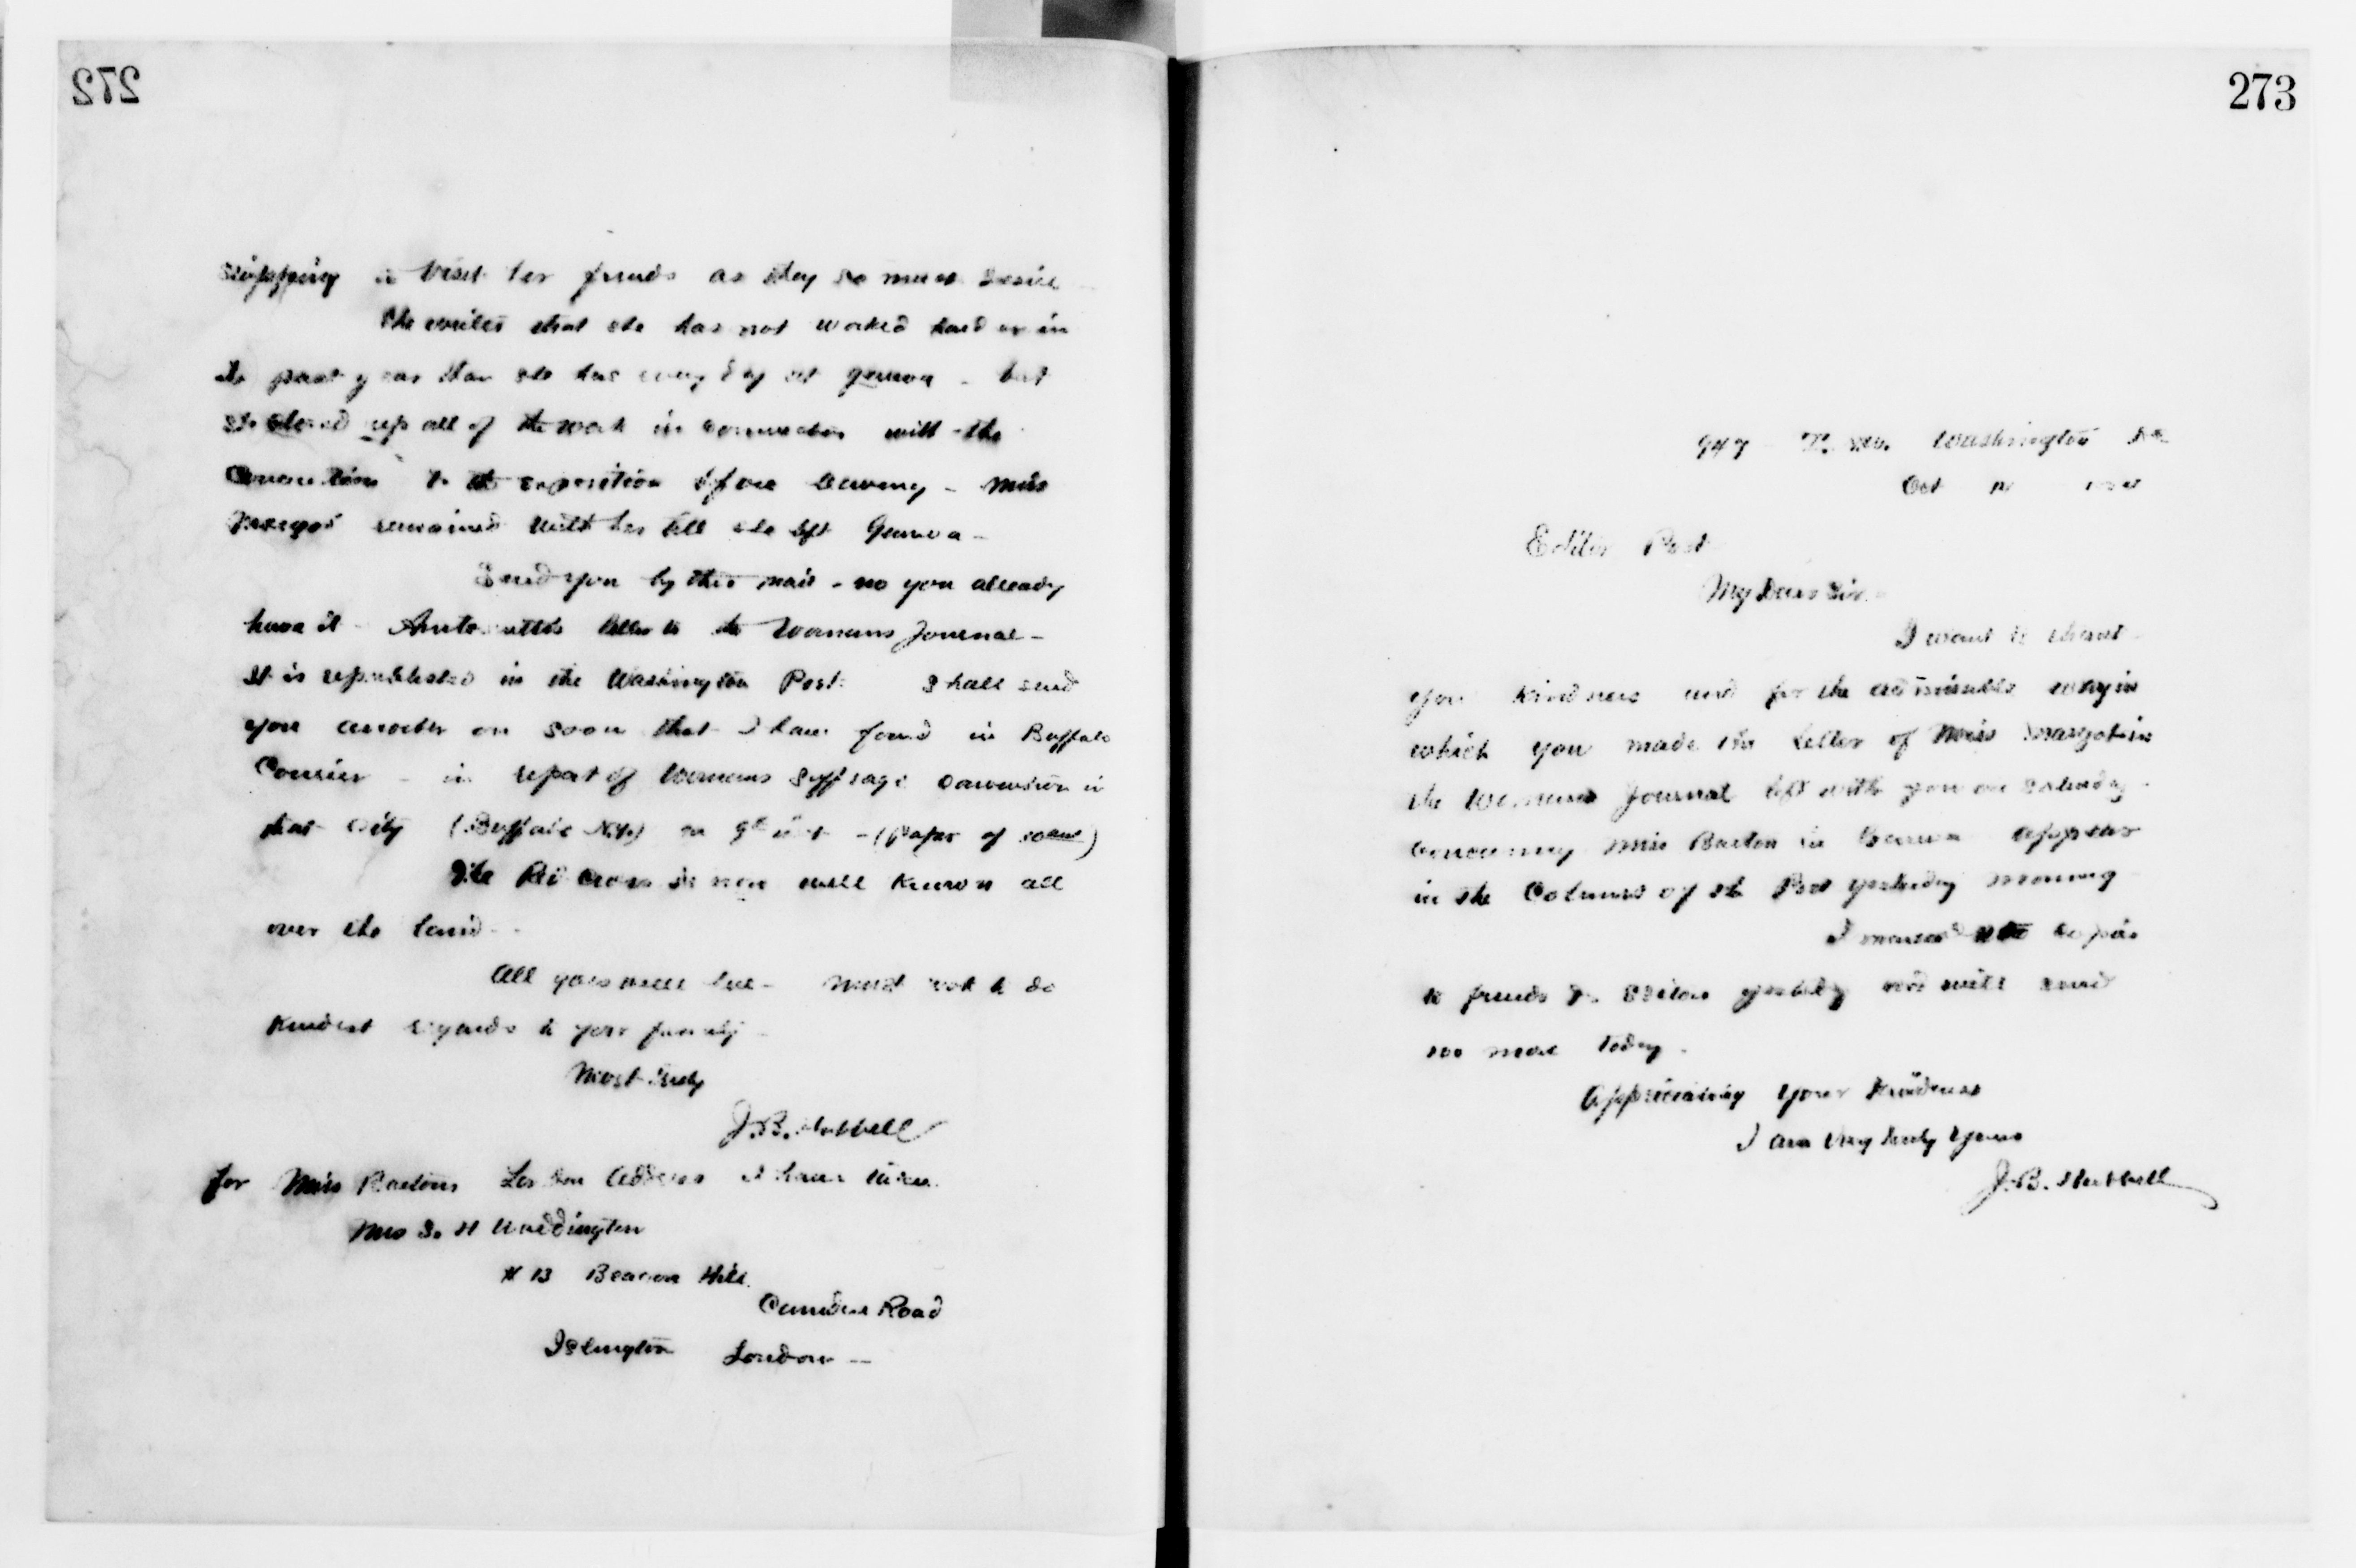 272
stopping to visit her friends as they so much desire
She writes that she has not worked harder in
the past year than she has every day at Geneva - but
she closed up all of the work in connection with the
Convention & the exposition before leaving - Miss
Margot remained with her till she left Geneva -
Send you by this mail - no you already
have it - Antoinette's letter to the Womans Journal -
It is republished in the Washington Post. Shall send
you another on soon that I have found in Buffalo
Courier - in report of Womans Suffrage convention in
that city (Buffalo N.Y.) on 9th inst - (paper of same)
The Red Cross is now well known all
over the land -
All goes well here - Much work to do
Kindest regards to your family -
Most truly
J. B. Hubbell
for Miss Bartons London Address I have taken
Mrs S. H Waddington
# 13 Beacon Hill
Camden Road
Islington London -
273
947 T. St. Washington DC
Oct
Editor Post
My Dear Sir.
I want to thank
your kindness and for the admirable way in
which you made the letter of Miss Margot in
the Womans Journal left with you on Saturday -
concerning Miss Barton in Geneva appear
in the Columns of the Post yesterday morning
I mailed copies
to friends yesterday and will send
more today -
Appreciating your kindness
I am Very truly Yours
J. B. Hubbell